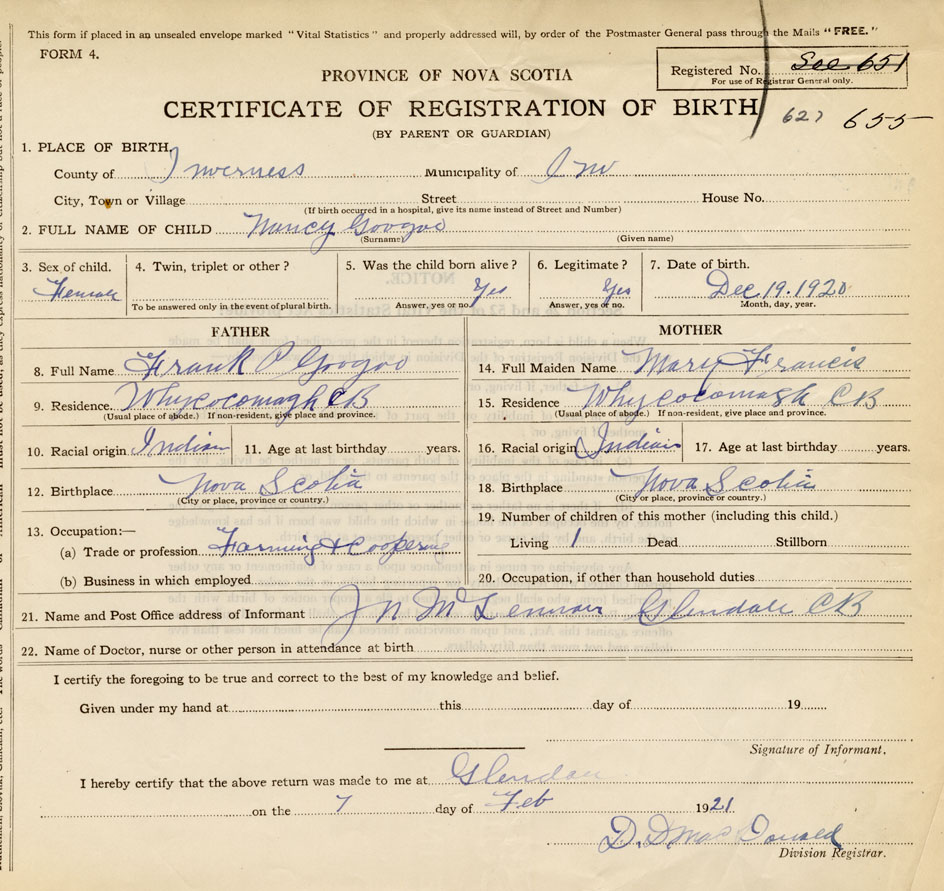 This form if placed in an unsealed envelope marked "Vital Statistics" and properly addressed will, by order of the Postmaster General pass through the Mails "FREE."
FORM 4.
Registered No. See 651
For use of Registrar General only.
PROVINCE OF NOVA SCOTIA
CERTIFICATE OF REGISTRATION OF BIRTH 627 655
(BY PARENT OR GUARDIAN)
1. PLACE OF BIRTH,
County of Inverness Municipality of Inv
City, Town or Village Street House No.
(If birth occurred in a hospital, give its name instead of Street and Number)
2. FULL NAME OF CHILD Nancy Googoo
(Surname) (Given name)
3. Sex of child. 4. Twin, triplet or other? 5. Was the child born alive? 6. Legitimate? 7. Date of birth.
Female Yes Yes Dec 19. 1920
To be answered only in the event of plural birth. Answer, yes or no. Answer, yes or no. Month, day, year.
FATHER
8. Full Name Frank P Googoo
9. Residence. Whycocomagh CB
(Usual place of abode.) If non-resident, give place and province.
10. Racial origin Indian 11. Age at last birthday years.
12. Birthplace Nova Scotia
(City or place, province or country.)
13. Occupation:—
(a) Trade or profession Farming & Coopering
(b) Business in which employed
MOTHER
14. Full Maiden Name Mary Francis
15. Residence Whycocomagh CB
(Usual place of abode.) If non-resident, give place and province.
16. Racial origin Indian 17. Age at last birthday years.
18. Birthplace Nova Scotia
(City or place, province or country.)
19. Number of children of this mother (including this child.)
Living 1 Dead Stillborn
20. Occupation, if other than household duties
21. Name and Post Office address of Informant J N McLennan Glendale CB
22. Name of Doctor, nurse or other person in attendance at birth
I certify the foregoing to be true and correct to the best of my knowledge and belief.
Given under my hand at this day of 19
Signature of Informant.
I hereby certify that the above return was made to me at Glendale
on the 7 day of Feb 1921
D. D MacDonald
Division Registrar.